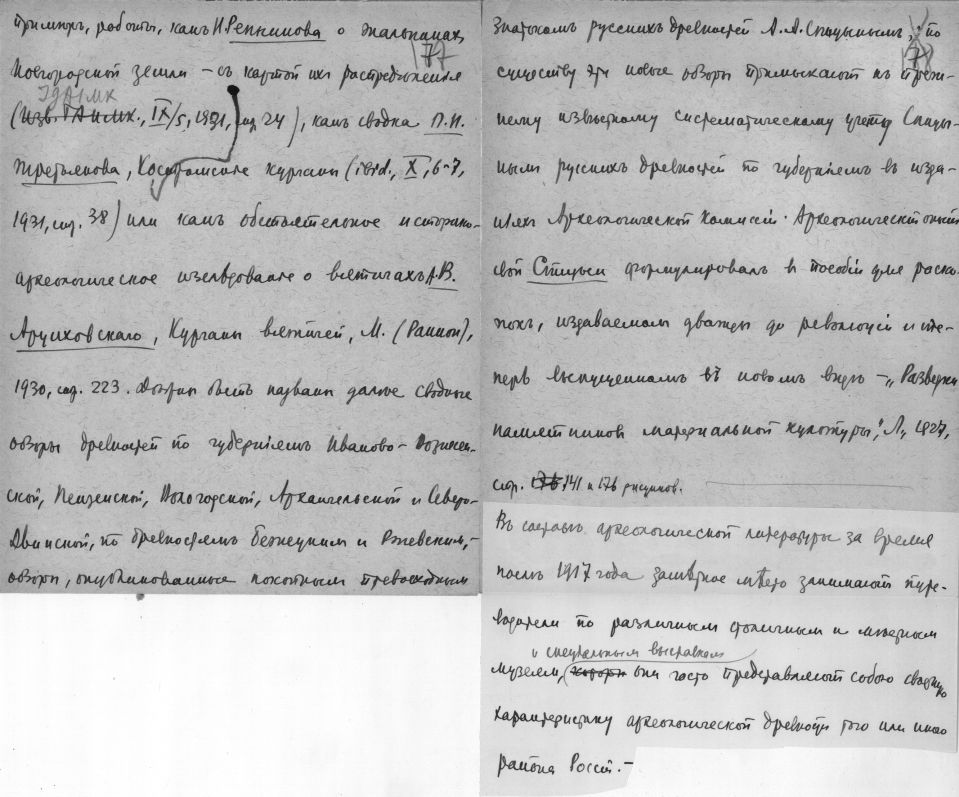 примѣръ, работы, какъ Н. Репникова о жальникахъ
77
Новгородской земли – съ картой ихъ распредѣленія
ГАИМХ
(Изв. ГАИМК., IX/5, 1931, стр. 24), какъ сводка П.Н.
Третьякова, Костромскіе курганы (ibid., X, 6-7,
1931, стр. 38) или какъ обстоятельное историко-
археологическое изслѣдованіе о вятичахъ А.В.
Арциховскаго, Курганы вятичей, М. (Ранион),
1930, стр. 223. Должны быть названы далѣе сводные
обзоры древностей по губерніямъ Иваново-Вознесен-
ской, Пензенской, Вологодской, Архангельской и Сѣверо-
Двинской, по древностямъ Бежецкимъ и Ржевскимъ, –
обзоры, опубликованные покойнымъ превосходнымъ
78
знатокомъ русскихъ древностей А.А. Спицынымъ; по
существу эти новые обзоры примыкаютъ къ преж-
нему извѣстному систематическому учету Спицы-
нымъ русскихъ древностей по губерніямъ въ изда-
ніяхъ Археологической Комиссіи. Археологическій опытъ
свой Спицын формулировалъ в пособіи для раско-
покъ, издаваемомъ дважды до революціи и те-
перь выпущенномъ въ новомъ видѣ – „Разведки
памятников материальной культуры", Л., 1927,
стр. 141 и 176 рисунков.
Въ составѣ археологической литературы за время
послѣ 1917 года замѣтное мѣсто занимаютъ путе-
водители по различнымъ столичнымъ и мѣстнымъ
и спеціальнымъ выставкам
музеямъ, они часто представляютъ собою сводную
характеристику археологической древности того или иного
района Россіи. –